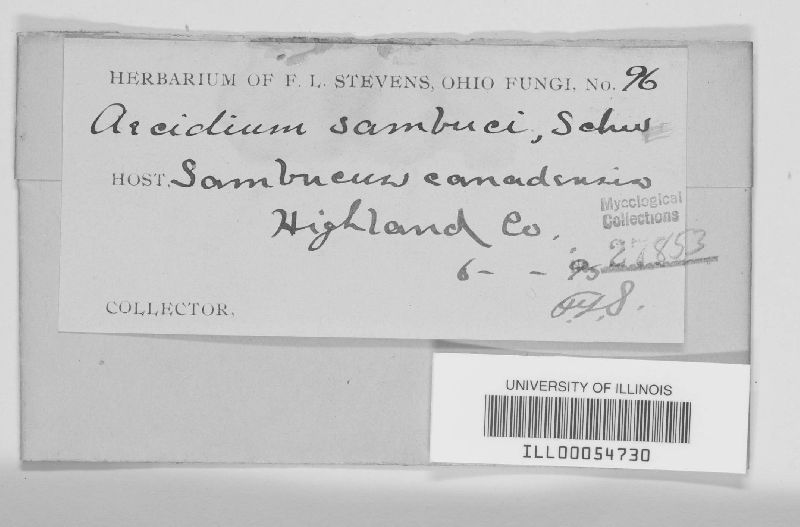 HERBARIUM OF F. L. STEVENS, OHIO FUNGI, No. 96
Aecidium sambuci, Schw
HOST, Sambucus canadensis
Highland Co.
Mycological
Collections
27853
6- - 95
COLLECTOR,
UNIVERSITY OF ILLINOIS
ILL00054730